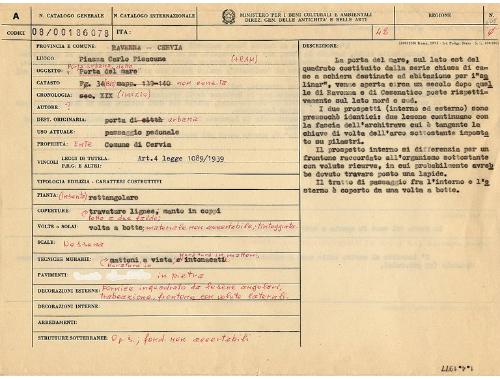 A
N. CATALOGO GENERALE
N. CATALOGO INTERNAZIONALE
MINISTERO PER I BENI CULTURALI E AMBIENTALI
DIREZ. GEN. DELLE ANTICHITÀ E BELLE ARTI
REGIONE
N.
CODICI
08/00186078
ITA:
48
PROVINCIA E COMUNE: RAVENNA - CERVIA
LUOGO: Piazza Carlo Pisacane
Porta urbana, detta
OGGETTO: Porta del mare
CATASTO: Fg. 34 mapp. 139-140 non censita
CRONOLOGIA: sec. XIX (inizio)
AUTORE: ?
DEST. ORIGINARIA: porta di città urbana
USO ATTUALE: passaggio pedonale
PROPRIETÀ: Ente Comune di Cervia
VINCOLI
LEGGI DI TUTELA: Art.4 legge 1089/1939
P.R.G. E ALTRI:
TIPOLOGIA EDILIZIA - CARATTERI COSTRUTTIVI
PIANTA: rettangolare
COPERTURE: travature lignee, manto in coppi
tetto a due falde;
VOLTE o SOLAI: volta a botte; materiale non accertabile; tinteggiata
SCALE: Nessuna
TECNICHE MURARIE: mattoni a vista e intonacati
PAVIMENTI: in pietra
DECORAZIONI ESTERNE: Fornice inquadrato da lesene angolari,
trabeazione, frontone con volute laterali.
DECORAZIONI INTERNE:
ARREDAMENTI:
STRUTTURE SOTTERRANEE: fond. non accertabili
DESCRIZIONE:
La porta del mare, sul lato est del
quadrato costituito dalla serie chiusa di ca-
se a schiera destinate ad abitazione per i "sa
linar", venne aperta circa un secolo dopo quel
le di Ravenna e di Cesenatico poste rispetti-
vamente sul lato nord e sud.
I due prospetti (interno ed esterno) sono
pressochè identici: due lesene continuano con
la fascia dell'architrave cui è tangente la
chiave di volta dell'arco sottostante imposta
to su pilastri.
Il prospetto interno si differenzia per un
frontone raccordato all'organismo sottostante
con volute ricurve, in cui probabilmente avreb
be dovuto trovare posto una lapide.
Il tratto di passaggio fra l'interno e l'e
sterno è coperto da una volta a botte.
1.4.1977